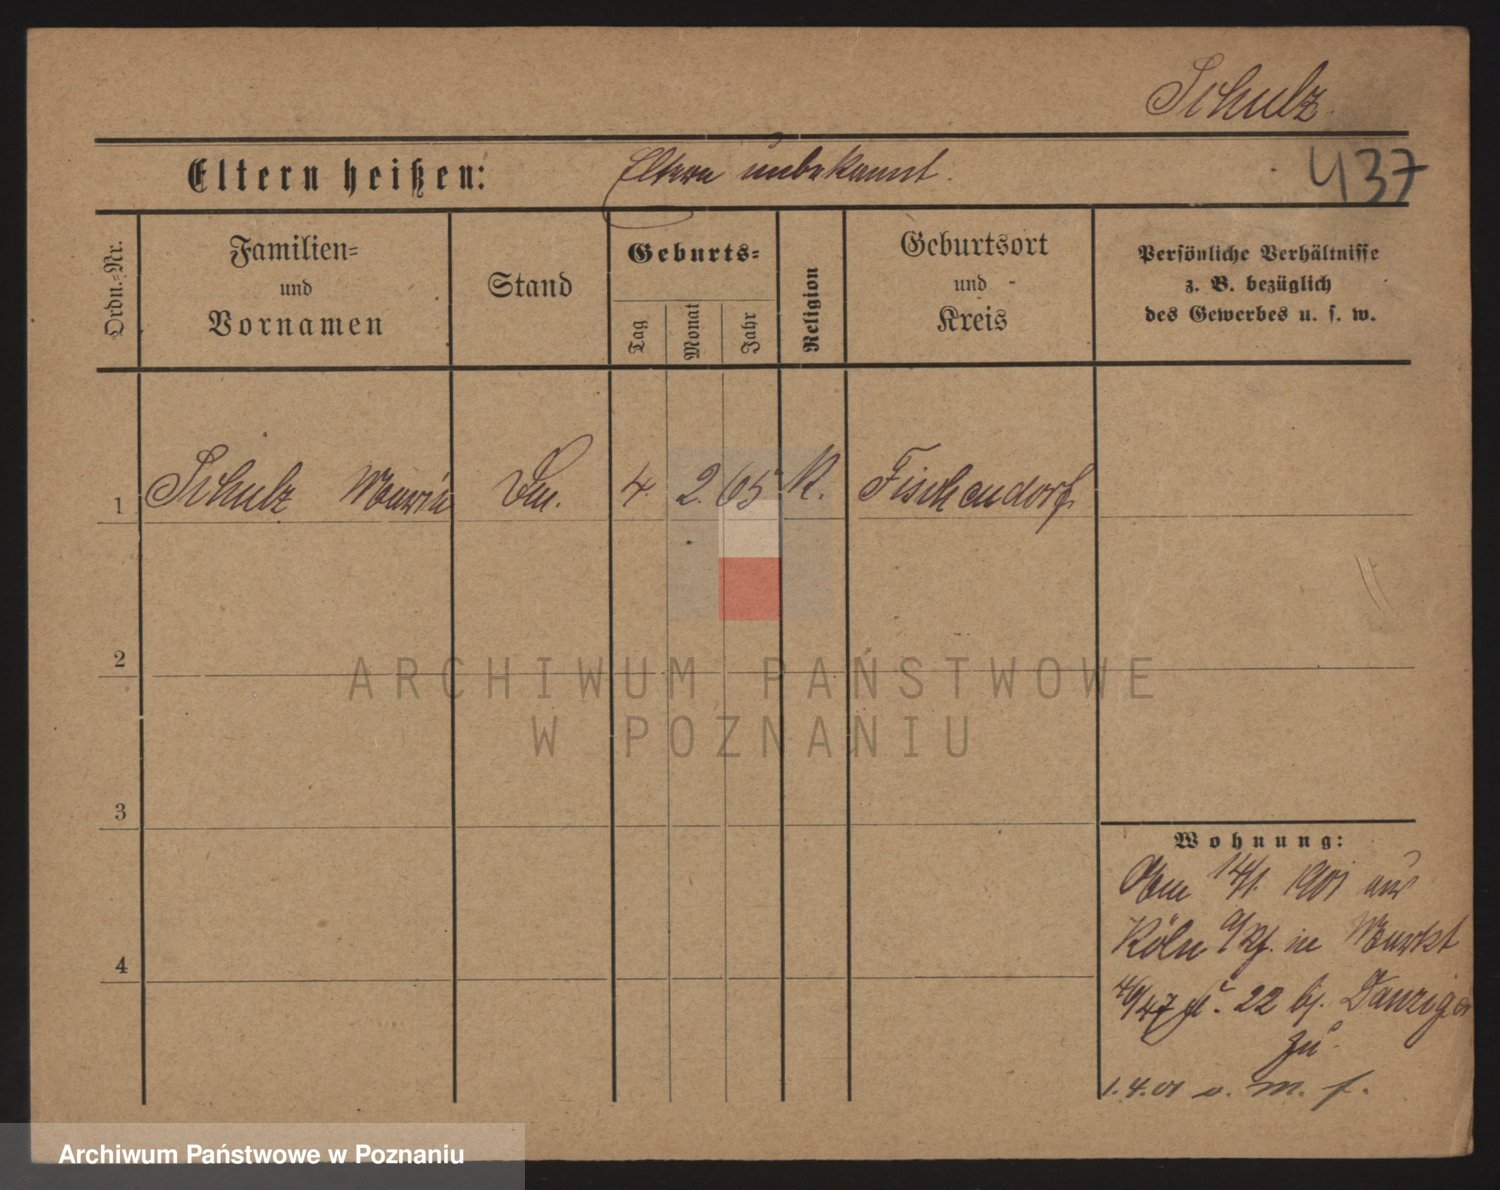 Schulz
437
Eltern heißen: Eltern unbekannt.
Ordn.-Nr.
Familien-
und
Vornamen
Stand
Geburts-
Tag
Monat
Jahr
Religion
Geburtsort
und
Kreis
Persönliche Verhältnisse
z. B. bezüglich
des Gewerbes u. s. w.
1 Schulz Maria 4. 2. 65 K. Fischendorf
2
3
4
ARCHIWUM PAŃSTWOWE
W POZNANIU
Wohnung:
Am 14/1. 1901 aus
Köln a/Rh. in Markt
46/47 22 bj. Danziger
zu.
1.4.01 v. m. f.
Archiwum Państwowe w Poznaniu